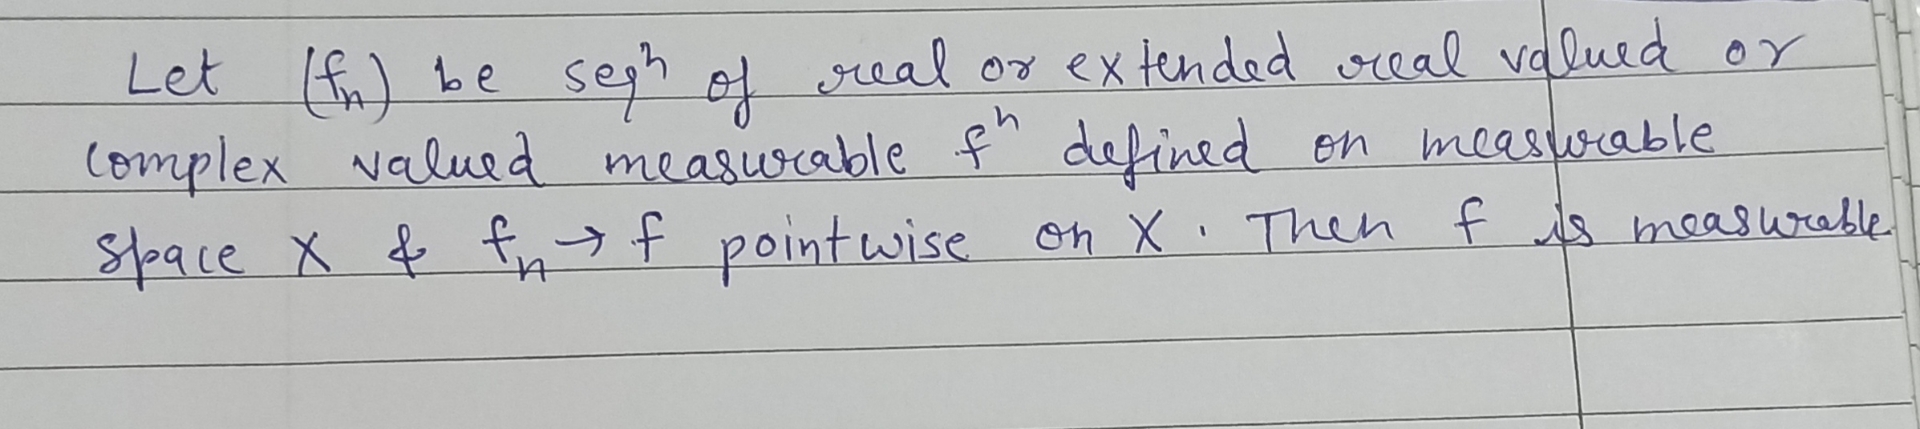 Let (fn) be seqn of real or extended real valued or
complex valued measurable fn defined on measurable
space X & fn → f pointwise on X. Then f is measurable